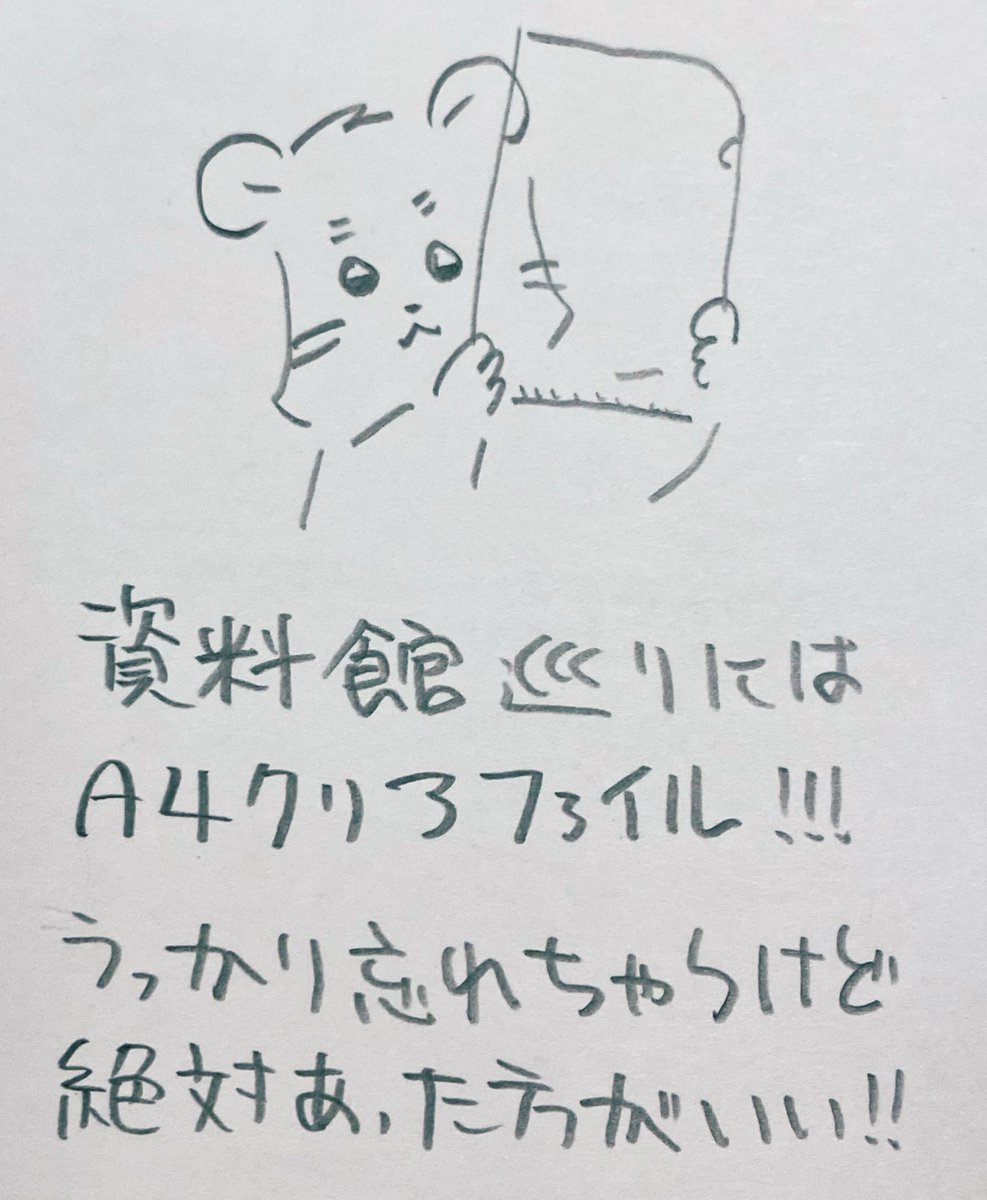 資料館巡りには
A4クリアファイル!!!
うっかり忘れちゃうけど
絶対あった方がいい!!